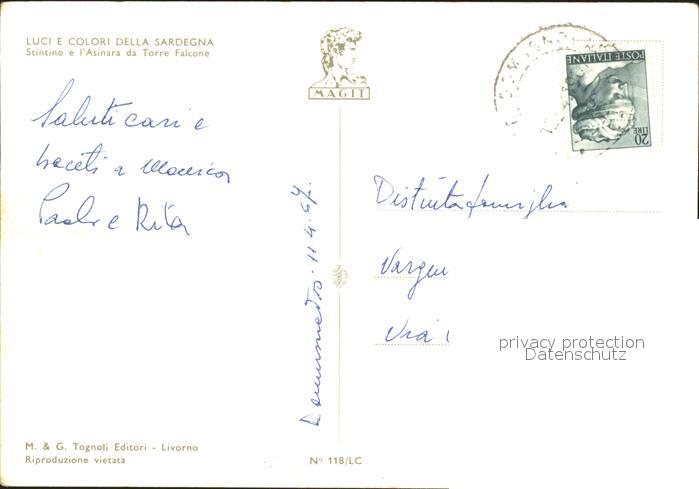 LUCI E COLORI DELLA SARDEGNA
Stintino e l'Asinara da Torre Falcone
MAGIT
POSTE ITALIANE
LIRE 20
Saluti cari e
baceti a Monica
Paolo e Rita
11.4.67.
Distinta famiglia
Vargeu
Via
privacy protection
Datenschutz
M. & G. Tognoli Editori - Livorno
Riproduzione vietata
Nº 118/LC